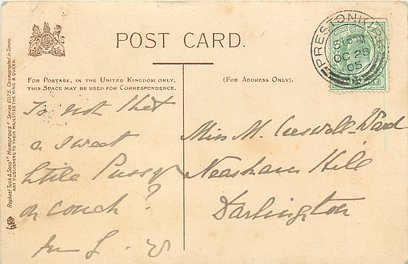 POST CARD.
FOR POSTAGE, IN THE UNITED KINGDOM ONLY,
THIS SPACE MAY BE USED FOR CORRESPONDENCE.
(FOR ADDRESS ONLY.)
PRESTONKIRK
OC 29
05
that
a sweet
little Pussy
on couch?
Miss M. Cresswell-Ward
Neasham Hill
Darlington
Raphael Tuck & Sons'
ART PUBLISHERS TO THEIR MAJESTIES THE KING & QUEEN.